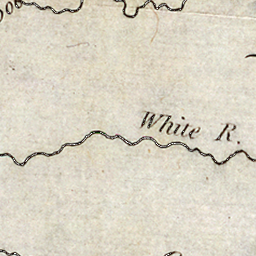 White R.